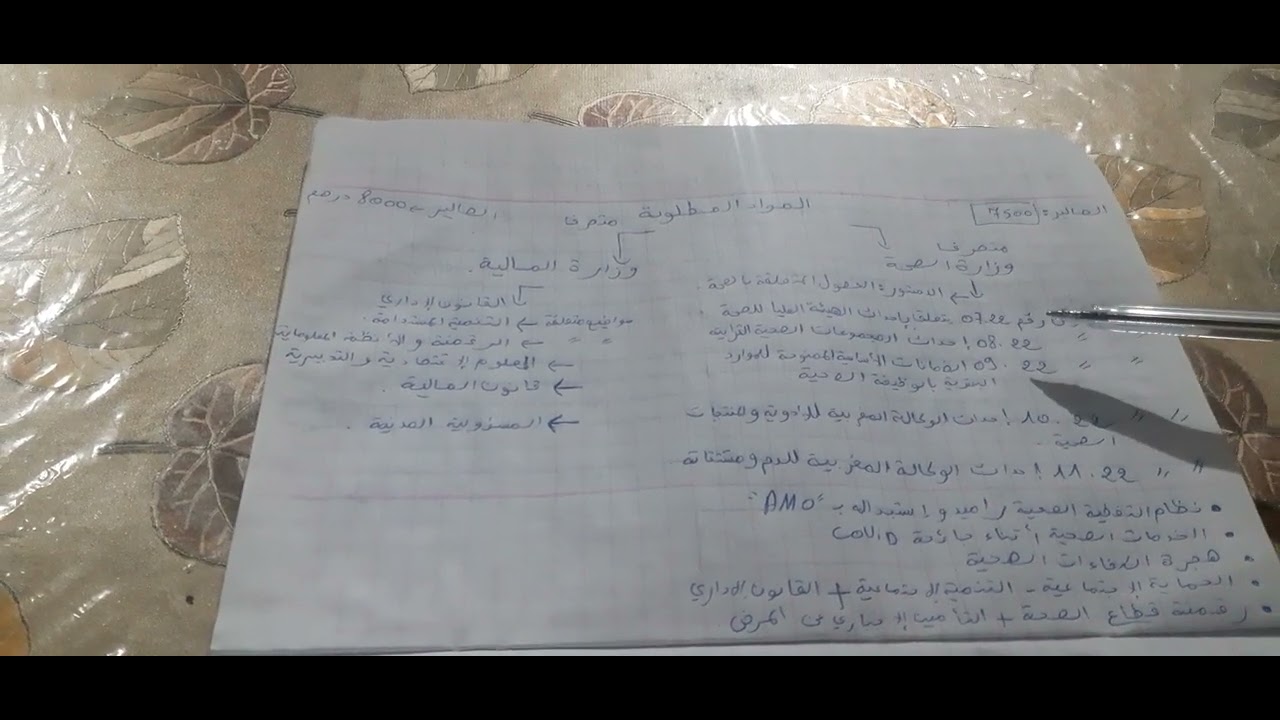 المواد المطلوبة
الصالير: 7500
متصرف
وزارة الصحة
الدستور: الفصول المتعلقة بالصحة.
رقم 07.22 يتعلق بإحداث الهيئة العليا للصحة.
" " 08.22 إحداث المجموعات الصحية الترابية
" " 09.22 الضمانات الأساسية الممنوحة للموارد
البشرية بالوظيفة الصحية
" " 10.22 إحداث الوكالة المغربية للأدوية والمنتجات
الصحية.
" " 11.22 إحداث الوكالة المغربية للدم ومشتقاته
• نظام التغطية الصحية راميد وإستبداله بـ "AMO"
• الخدمات الصحية أثناء جائحة
• هجرة الكفاءات الصحية
• الحماية الإجتماعية - التنمية الإجتماعية + القانون الإداري
• رقمنة قطاع الصحة + التأمين الإجباري عن المرض.
الصالير 8000 درهم
متصرف
وزارة المالية.
القانون الإداري
مواضيع متعلقة ← التنمية المستدامة.
" " ← الرقمنة والأنظمة المعلوماتية
← العلوم الإقتصادية والتدبيرية
← قانون المالية.
← المسؤولية المدنية.